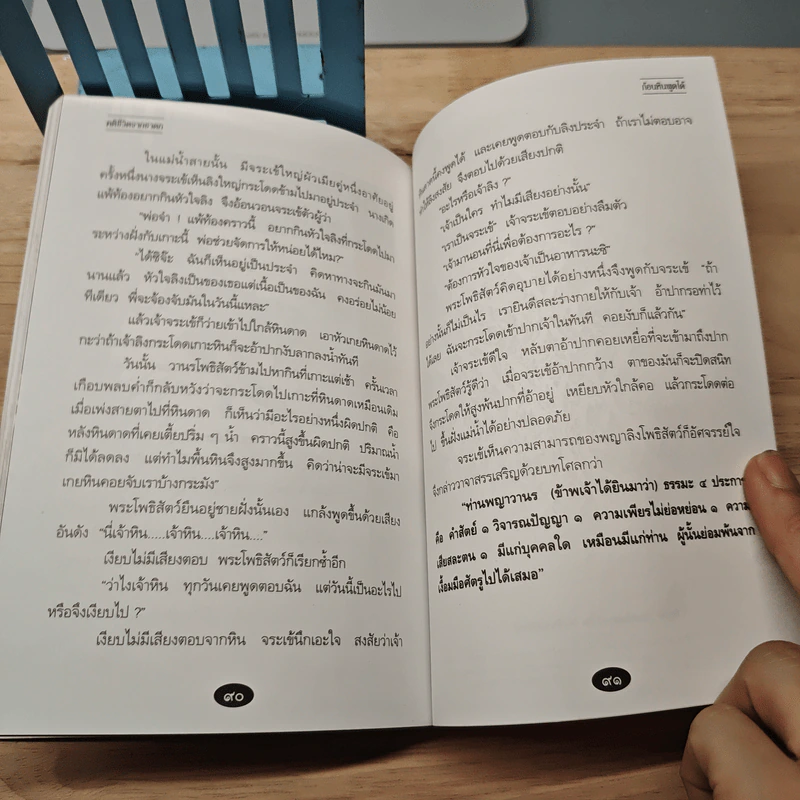 คติชีวิตจากชาดก
ในแม่น้ำสายนั้น มีจระเข้ใหญ่ผัวเมียคู่หนึ่งอาศัยอยู่
ครั้งหนึ่งนางจระเข้เห็นลิงใหญ่กระโดดข้ามไปมาอยู่ประจำ นางเกิด
แพ้ท้องอยากกินหัวใจลิง จึงอ้อนวอนจระเข้ตัวผู้ว่า
"พ่อจ๋า ! แพ้ท้องคราวนี้ อยากกินหัวใจลิงที่กระโดดไปมา
ระหว่างฝั่งกับเกาะนี้ พ่อช่วยจัดการให้หน่อยได้ไหม?"
"ได้ซิจ๊ะ ฉันก็เห็นอยู่เป็นประจำ คิดหาทางจะกินมันมา
นานแล้ว หัวใจลิงเป็นของเธอแต่เนื้อเป็นของฉัน คงอร่อยไม่น้อย
ทีเดียว ที่จะจ้องจับมันในวันนี้แหละ"
แล้วเจ้าจระเข้ก็ว่ายเข้าไปใกล้หินดาด เอาหัวเกยหินดาดไว้
กะว่าถ้าเจ้าลิงกระโดดเกาะหินก็จะอ้าปากงับลากลงน้ำทันที
วันนั้น วานรโพธิสัตว์ข้ามไปหากินที่เกาะแต่เช้า ครั้นเวลา
เกือบพลบค่ำก็กลับหวังว่าจะกระโดดไปเกาะที่หินดาดเหมือนเดิม
เมื่อเพ่งสายตาไปที่หินดาด ก็เห็นว่ามีอะไรอย่างหนึ่งผิดปกติ คือ
หลังหินดาดที่เคยเตี้ยปริ่ม ๆ น้ำ คราวนี้สูงขึ้นผิดปกติ ปริมาณน้ำ
ก็มิได้ลดลง แต่ทำไมพื้นหินจึงสูงมากขึ้น คิดว่าน่าจะมีจระเข้มา
เกยหินคอยจับเราบ้างกระมัง"
พระโพธิสัตว์ยืนอยู่ชายฝั่งนั้นเอง แกล้งพูดขึ้นด้วยเสียง
อันดัง "นี่เจ้าหิน.....เจ้าหิน....เจ้าหิน...."
เงียบไม่มีเสียงตอบ พระโพธิสัตว์ก็เรียกซ้ำอีก
"ว่าไงเจ้าหิน ทุกวันเคยพูดตอบฉัน แต่วันนี้เป็นอะไรไป
หรือจึงเงียบไป ?"
เงียบไม่มีเสียงตอบจากหิน จระเข้นึกเอะใจ สงสัยว่าเจ้า
๙๐
ก้อนหินพูดได้
หินดาดนี้คงพูดได้ และเคยพูดตอบกับลิงประจำ ถ้าเราไม่ตอบอาจ
ทำให้ลิงสงสัย จึงตอบไปด้วยเสียงปกติ
"อะไรหรือเจ้าลิง ?"
"เจ้าเป็นใคร ทำไมมีเสียงอย่างนั้น"
"เราเป็นจระเข้" เจ้าจระเข้ตอบอย่างลืมตัว
"เจ้ามานอนที่นี่เพื่อต้องการอะไร ?"
"ต้องการหัวใจของเจ้าเป็นอาหารนะซิ"
พระโพธิสัตว์คิดอุบายได้อย่างหนึ่งจึงพูดกับจระเข้ "ถ้า
อย่างนั้นก็ไม่เป็นไร เรายินดีสละร่างกายให้กับเจ้า อ้าปากรอท่าไว้
ได้เลย ฉันจะกระโดดเข้าปากเจ้าในทันที คอยงับก็แล้วกัน"
เจ้าจระเข้ดีใจ หลับตาอ้าปากคอยเหยื่อที่จะเข้ามาถึงปาก
พระโพธิสัตว์รู้ดีว่า เมื่อจระเข้อ้าปากกว้าง ตาของมันก็จะปิดสนิท
จึงกระโดดให้สูงพ้นปากที่อ้าอยู่ เหยียบหัวใกล้คอ แล้วกระโดดต่อ
ไป ขึ้นฝั่งแม่น้ำได้อย่างปลอดภัย
จระเข้เห็นความสามารถของพญาลิงโพธิสัตว์ก็อัศจรรย์ใจ
จึงกล่าววาจาสรรเสริญด้วยบทโศลกว่า
"ท่านพญาวานร (ข้าพเจ้าได้ยินมาว่า) ธรรมะ ๔ ประการ
คือ คำสัตย์ ๑ วิจารณปัญญา ๑ ความเพียรไม่ย่อหย่อน ๑ ความ
เสียสละตน ๑ มีแก่บุคคลใด เหมือนมีแก่ท่าน ผู้นั้นย่อมพ้นจาก
เงื้อมมือศัตรูไปได้เสมอ"
๙๑